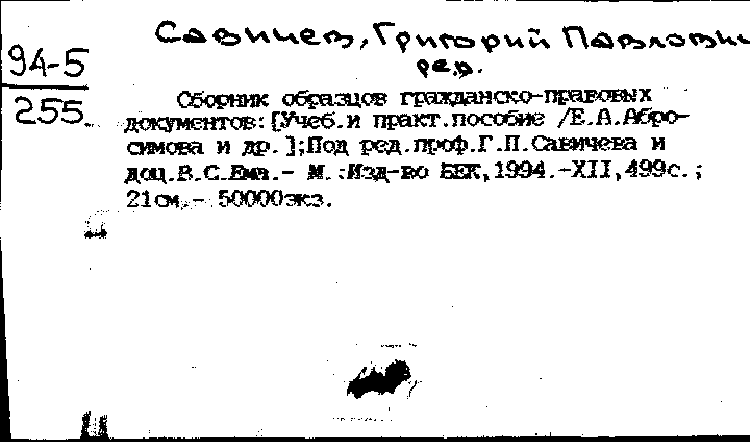 Савичев, Григорий Павлович
ред.
94-5
255
Сборник образцов гражданско-правовых
документов:[Учеб.и практ.пособие /Е.А.Абро-
симова и др.];Под ред.проф.Г.П.Савичева и
доц.В.С.Ема.- М.:Изд-во БЕК,1994.-XII,499с.;
21см.- 50000экз.